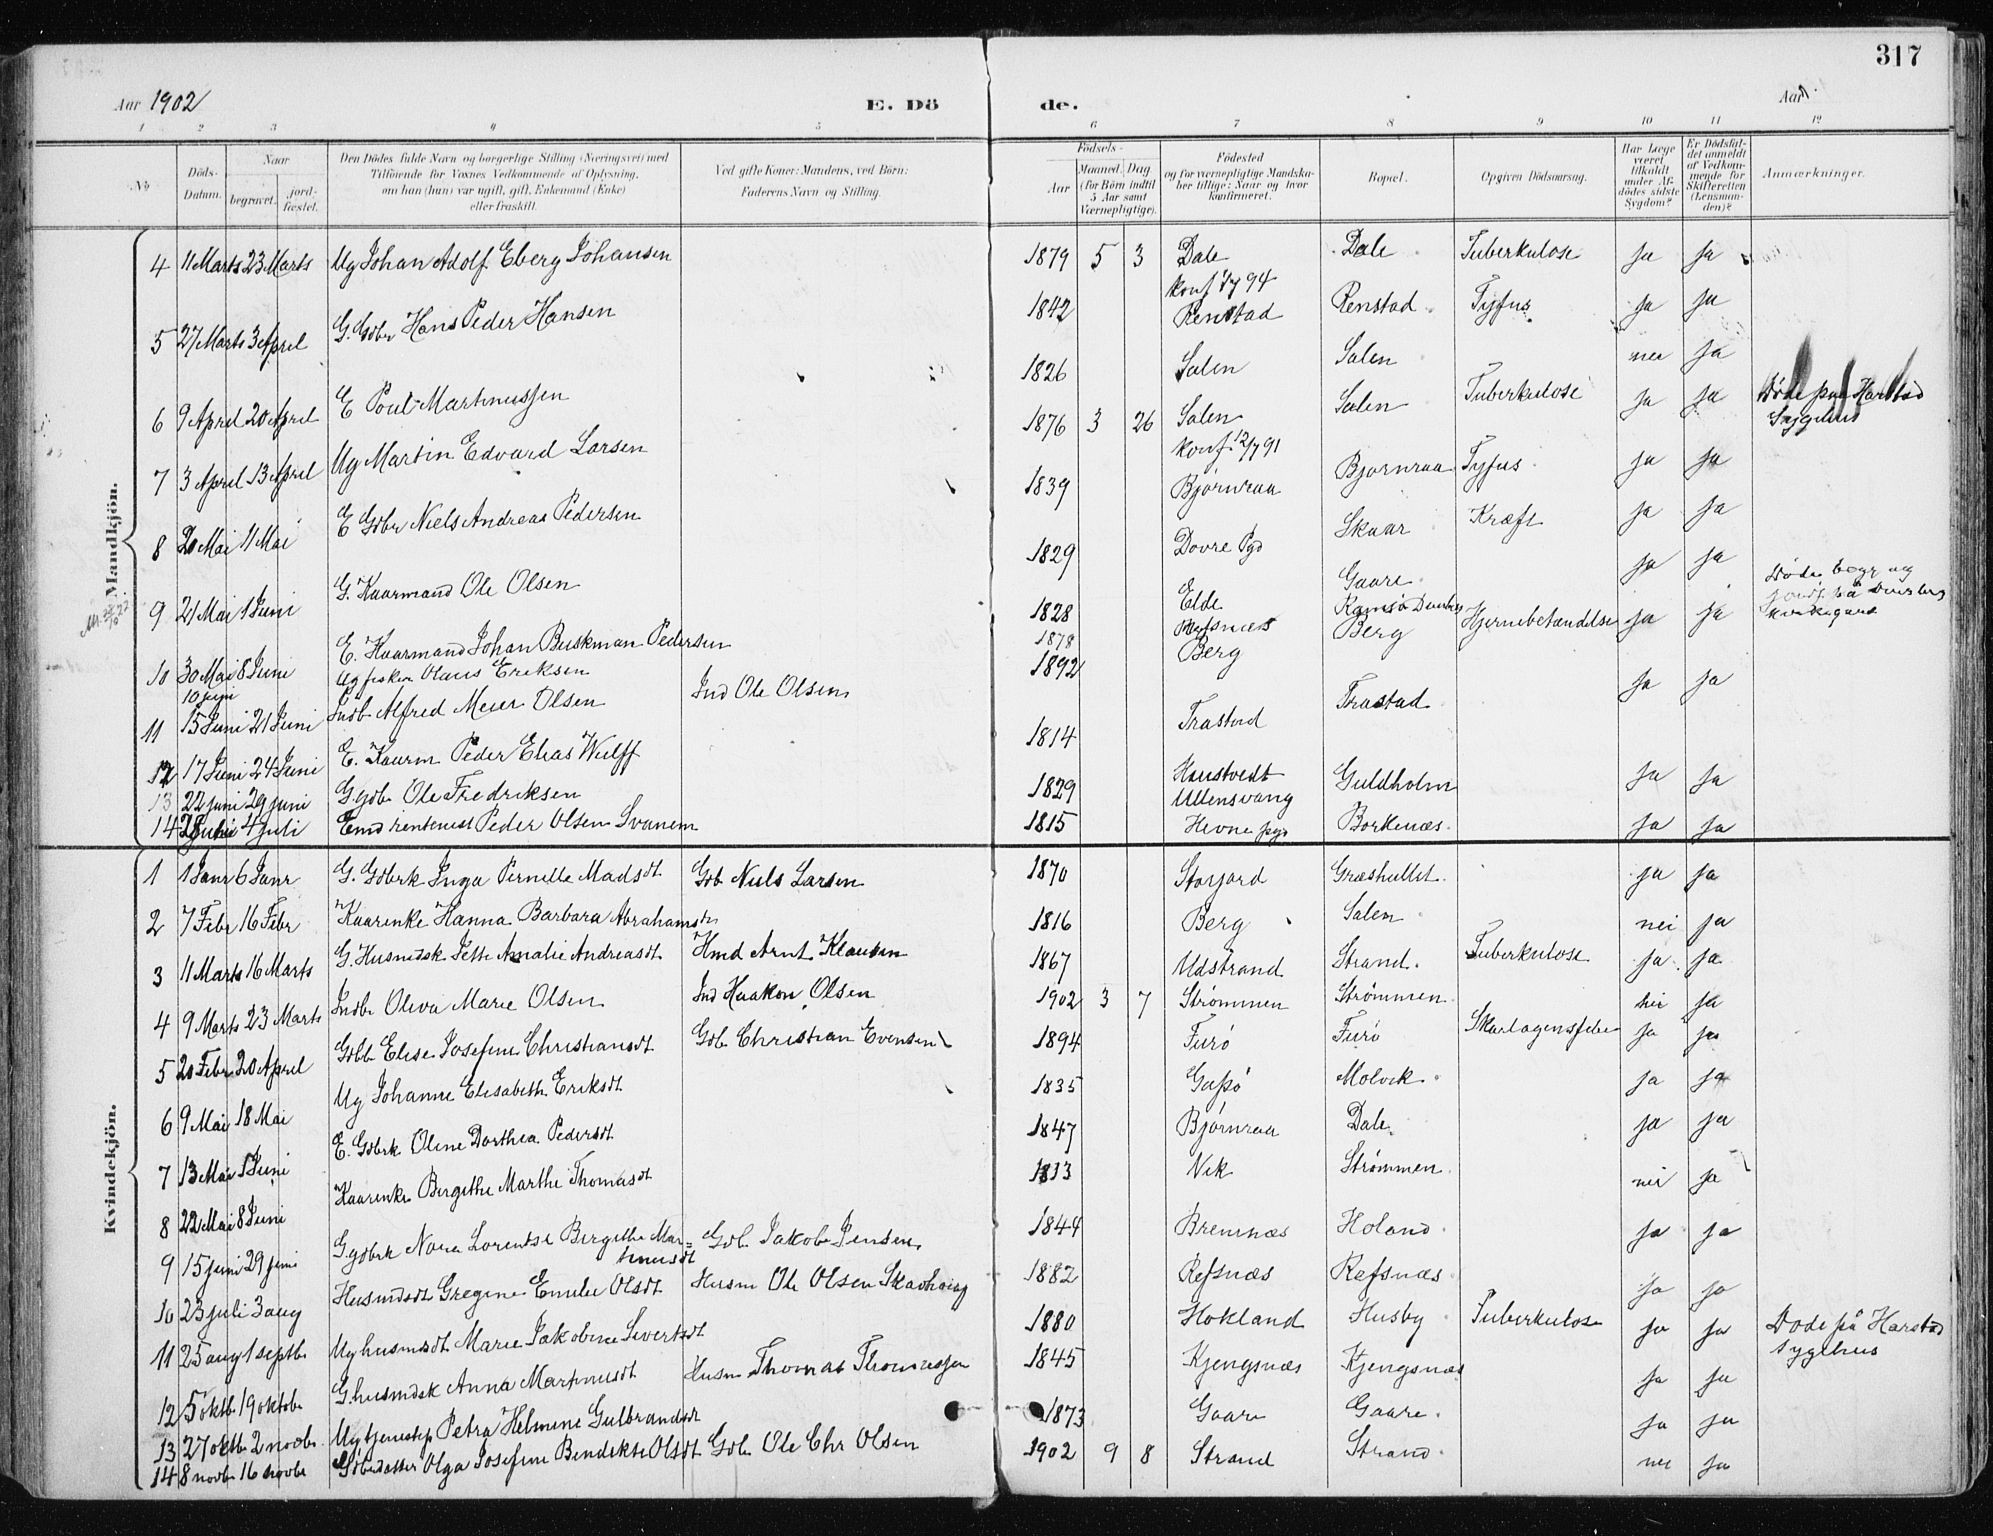 317
Aar 1902 E. Dö de. Aar
1 2 3 4 5 6 7 8 9 10 11 12
No Döds-Datum. Naar begravet. jord-fæstet. Den Dödes fulde Navn og borgerlige Stilling (Næringsvei) med Tilföiende for Voxnes Vedkommende af Oplysning, om han (hun) var ugift, gift, Enkemand (Enke) eller fraskilt. Ved gifte Koner: Mandens, ved Börn: Faderens Navn og Stilling. Födsels- Aar Maaned. Dag (for Börn indtil 5 Aar samt Værnepligtige). Födested og for værnepligtige Mandskaber tillige: Naar og hvor konfirmeret. Bopæl. Opgiven Dödsaarsag. Har Læge været tilkaldt under Afdödes sidste Sygdom? Er Dödsfaldet anmeldt af Vedkommende for Skifteretten (Lensmanden)? Anmærkninger.
Mandkjön.
4 11 Marts 23 Marts Ug Johan Adolf Eberg Johansen 1879 5 3 Dale Dale Tuberkulose ja ja
konf 94
5 27 Marts 3 April G. Gdbr Hans Peder Hansen 1842 Renstad Renstad Tyfus ja ja
6 9 April 20 April E Poul Martinussen 1826 Salen Salen nei ja
7 3 April 13 April Ug Martin Edvard Larsen 1876 3 26 Salen Salen Tuberkulose ja ja Døde paa Harstad Sygehus
konf. 12/7 91
8 20 Mai 11 Mai E Gdbr Niels Andreas Pedersen 1839 Bjørnraa Bjørnraa Tyfus ja ja
9 21 Mai 1 Juni G. Kaarmand Ole Olsen 1829 Dovre Pgd Skaar Kræft ja ja
10 30 Mai 8 Juni E. Kaarmand Johan Buskman Pedersen 1828 Elde Gaare ja ja
10 juni Ug fisker Olaus Eriksen 1878 Refsnæs Ramsø Hjernebetændelse ja ja Døde begr og
11 15 Juni 21 Juni Indb Alfred Meier Olsen Ind Ole Olsen 1892 Berg Berg ja ja
12 17 Juni 24 Juni E. Kaarm Peder Elias Wulff 1814 Trastad Trastad
13 22 juni 29 juni G. gdb Ole Fredriksen 1829 Ullensvang Guldholm ja ja
14 4 juli Emd rentenist Peder Olsen Svanem 1815 Hevne pgd Borkenæs ja ja
Kvindekjön.
1 1 Janr 6 Janr G. Gdbrk Inga Pernille Madsdt Gdb Niels Larsen 1870 Storjord Græshullet ja ja
2 7 Febr 16 Febr Kaarenke Hanna Barbara Abrahamsdt 1816 Berg Salen nei ja
3 11 Marts 16 Marts G. Husmdsk Jette Amalie Andreasdt Hmd Arnt Klausen 1867 Udstrand Strand Tuberkulose ja ja
4 9 Marts 23 Marts Indbr Oliva Marie Olsen Ind Haakon Olsen 1902 3 7 Strømmen Strømmen nei ja
5 20 Febr 20 April Gdbb Elise Josefine Christiansdt Gdb Christian Evensen 1894 Furø Furø Skarlagensfeber ja ja
6 9 Mai 18 Mai Ug Johanne Elisabeth Eriksdt 1835 Gapø Molvik ja ja
7 13 Mai 1 Juni E. Gdbrk Oline Dorthea Pedersdt 1847 Bjørnraa Dale ja ja
8 22 Mai 8 Juni Kaarenke Bergithe Marthe Thomasdt 1813 Vik Strømmen nei ja
9 15 juni 29 juni G. gdbrk Nora Lorentse Bergithe Mar= Gdb. Jakob Jensen 1844 Bremnæs Holand ja ja
tinusdt
10 23 juli 3 aug Husmdsdt Gregine Emilie Olsdt Husm Ole Olsen Skavhaug 1882 Refsnæs Refsnæs ja ja
11 25 aug 1 septb Ug husmdsdt Marie Jakobine Sivertsdt 1880 Hokland Husby Tuberkulose ja ja Døde på Harstad Sygehus
12 5 oktb 19 oktobr G. husmdsk Anna Martinusdt Husm Thomas Thomassen 1845 Kjengsnæs Kjengsnæs ja ja
13 27 oktb 2 novbr Ug tjenestep Petra Helmine Gulbrandsdt 1873 Gaare Gaare ja ja
14 8 novb 16 novbr Gdbrdatter Olga Josefine Bendikte Olsdt Gdb Ole Chr Olsen 1902 9 8 Strand Strand nei ja